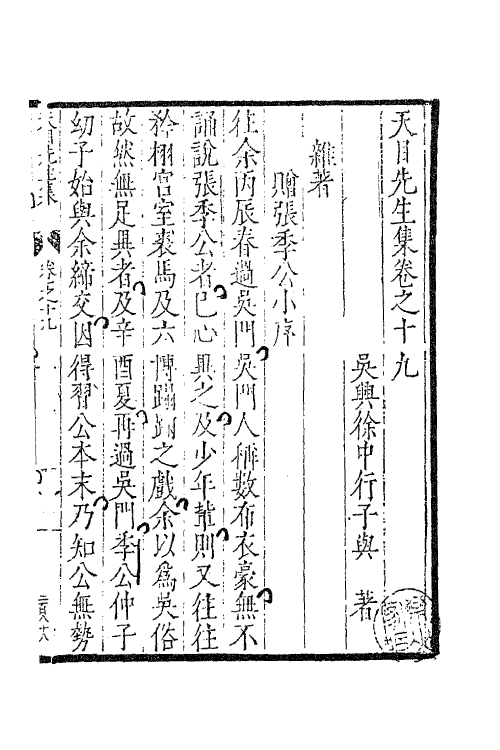 天目先生集卷之十九
吳興徐中行子與 著
雜著
贈張季公小序
往余丙辰春過吳門吳門人稱數布衣豪無不
誦說張季公者已心異之及少年輩則又往往
矜栩宮室裘馬及六博蹋踘之戲余以為吳俗
故然無足異者及辛酉夏再過吳門季公仲子
幼子始與余締交因得習公本末乃知公無勢
天目先生集 卷之十九